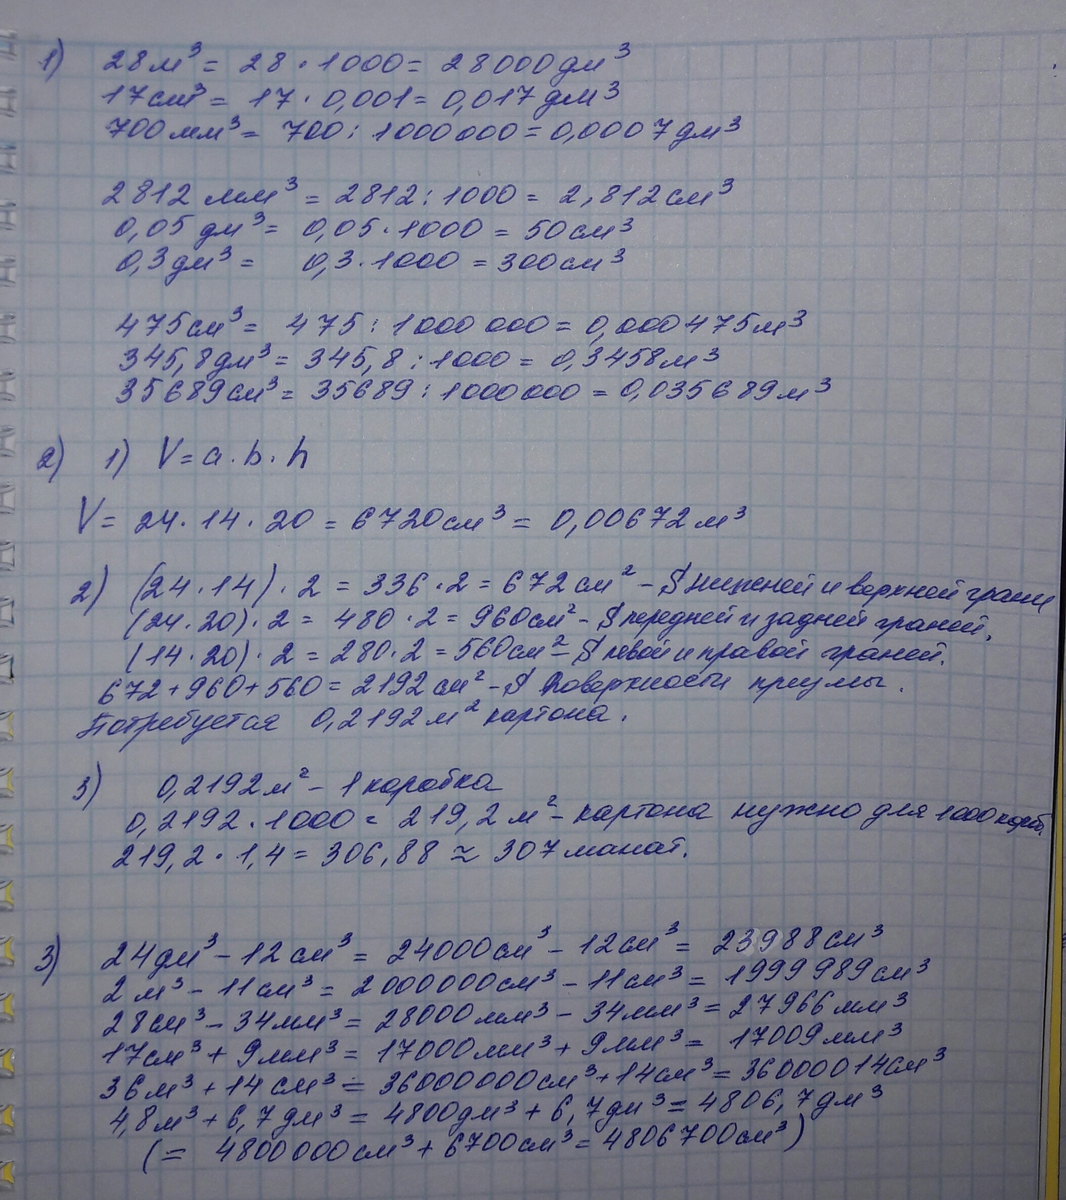 1) 28 м³ = 28 · 1000 = 28000 дм³
17 см³ = 17 · 0,001 = 0,017 дм³
700 мм³ = 700 : 1000000 = 0,0007 дм³
2812 мм³ = 2812 : 1000 = 2,812 см³
0,05 дм³ = 0,05 · 1000 = 50 см³
0,3 дм³ = 0,3 · 1000 = 300 см³
475 см³ = 475 : 1000 000 = 0,000475 м³
345,8 дм³ = 345,8 : 1000 = 0,3458 м³
35689 см³ = 35689 : 1000000 = 0,035689 м³
2) 1) V = a · b · h
V = 24 · 14 · 20 = 6720 см³ = 0,00672 м³
2) (24 · 14) · 2 = 336 · 2 = 672 см² - S нижней и верхней грани
(24 · 20) · 2 = 480 · 2 = 960 см² - S передней и задней граней.
(14 · 20) · 2 = 280 · 2 = 560 см² - S левой и правой граней.
672 + 960 + 560 = 2192 см² - S поверхности призмы.
Потребуется 0,2192 м² картона.
3) 0,2192 м² - 1 коробка
0,2192 · 1000 = 219,2 м² - картона нужно для 1000 короб.
219,2 · 1,4 = 306,88 ≈ 307 манат.
3) 24 дм³ - 12 см³ = 24000 см³ - 12 см³ = 23988 см³
2 м³ - 11 см³ = 2000000 см³ - 11 см³ = 1999989 см³
28 см³ - 34 мм³ = 28000 мм³ - 34 мм³ = 27966 мм³
17 см³ + 9 мм³ = 17000 мм³ + 9 мм³ = 17009 мм³
36 м³ + 14 см³ = 36000000 см³ + 14 см³ = 36000014 см³
4,8 м³ + 6,7 дм³ = 4800 дм³ + 6,7 дм³ = 4806,7 дм³
(= 4800000 см³ + 6700 см³ = 4806700 см³)